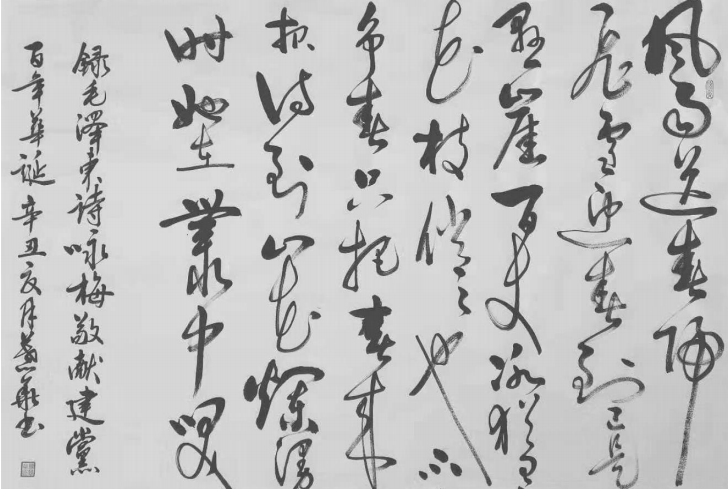 風雨送春歸
飛雪迎春到已是
懸崖百丈冰猶有
花枝俏俏也不
争春只把春来
报待到山花爛漫
时她在叢中笑
録毛澤东詩咏梅敬献建黨
百年華誕辛丑夏月书